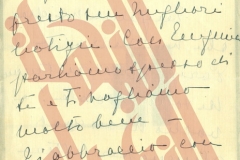 presto sue migliori
notizie. Con Eugenia
parliamo spesso di
te e ti vogliamo
molto bene –
Ti abbraccio con